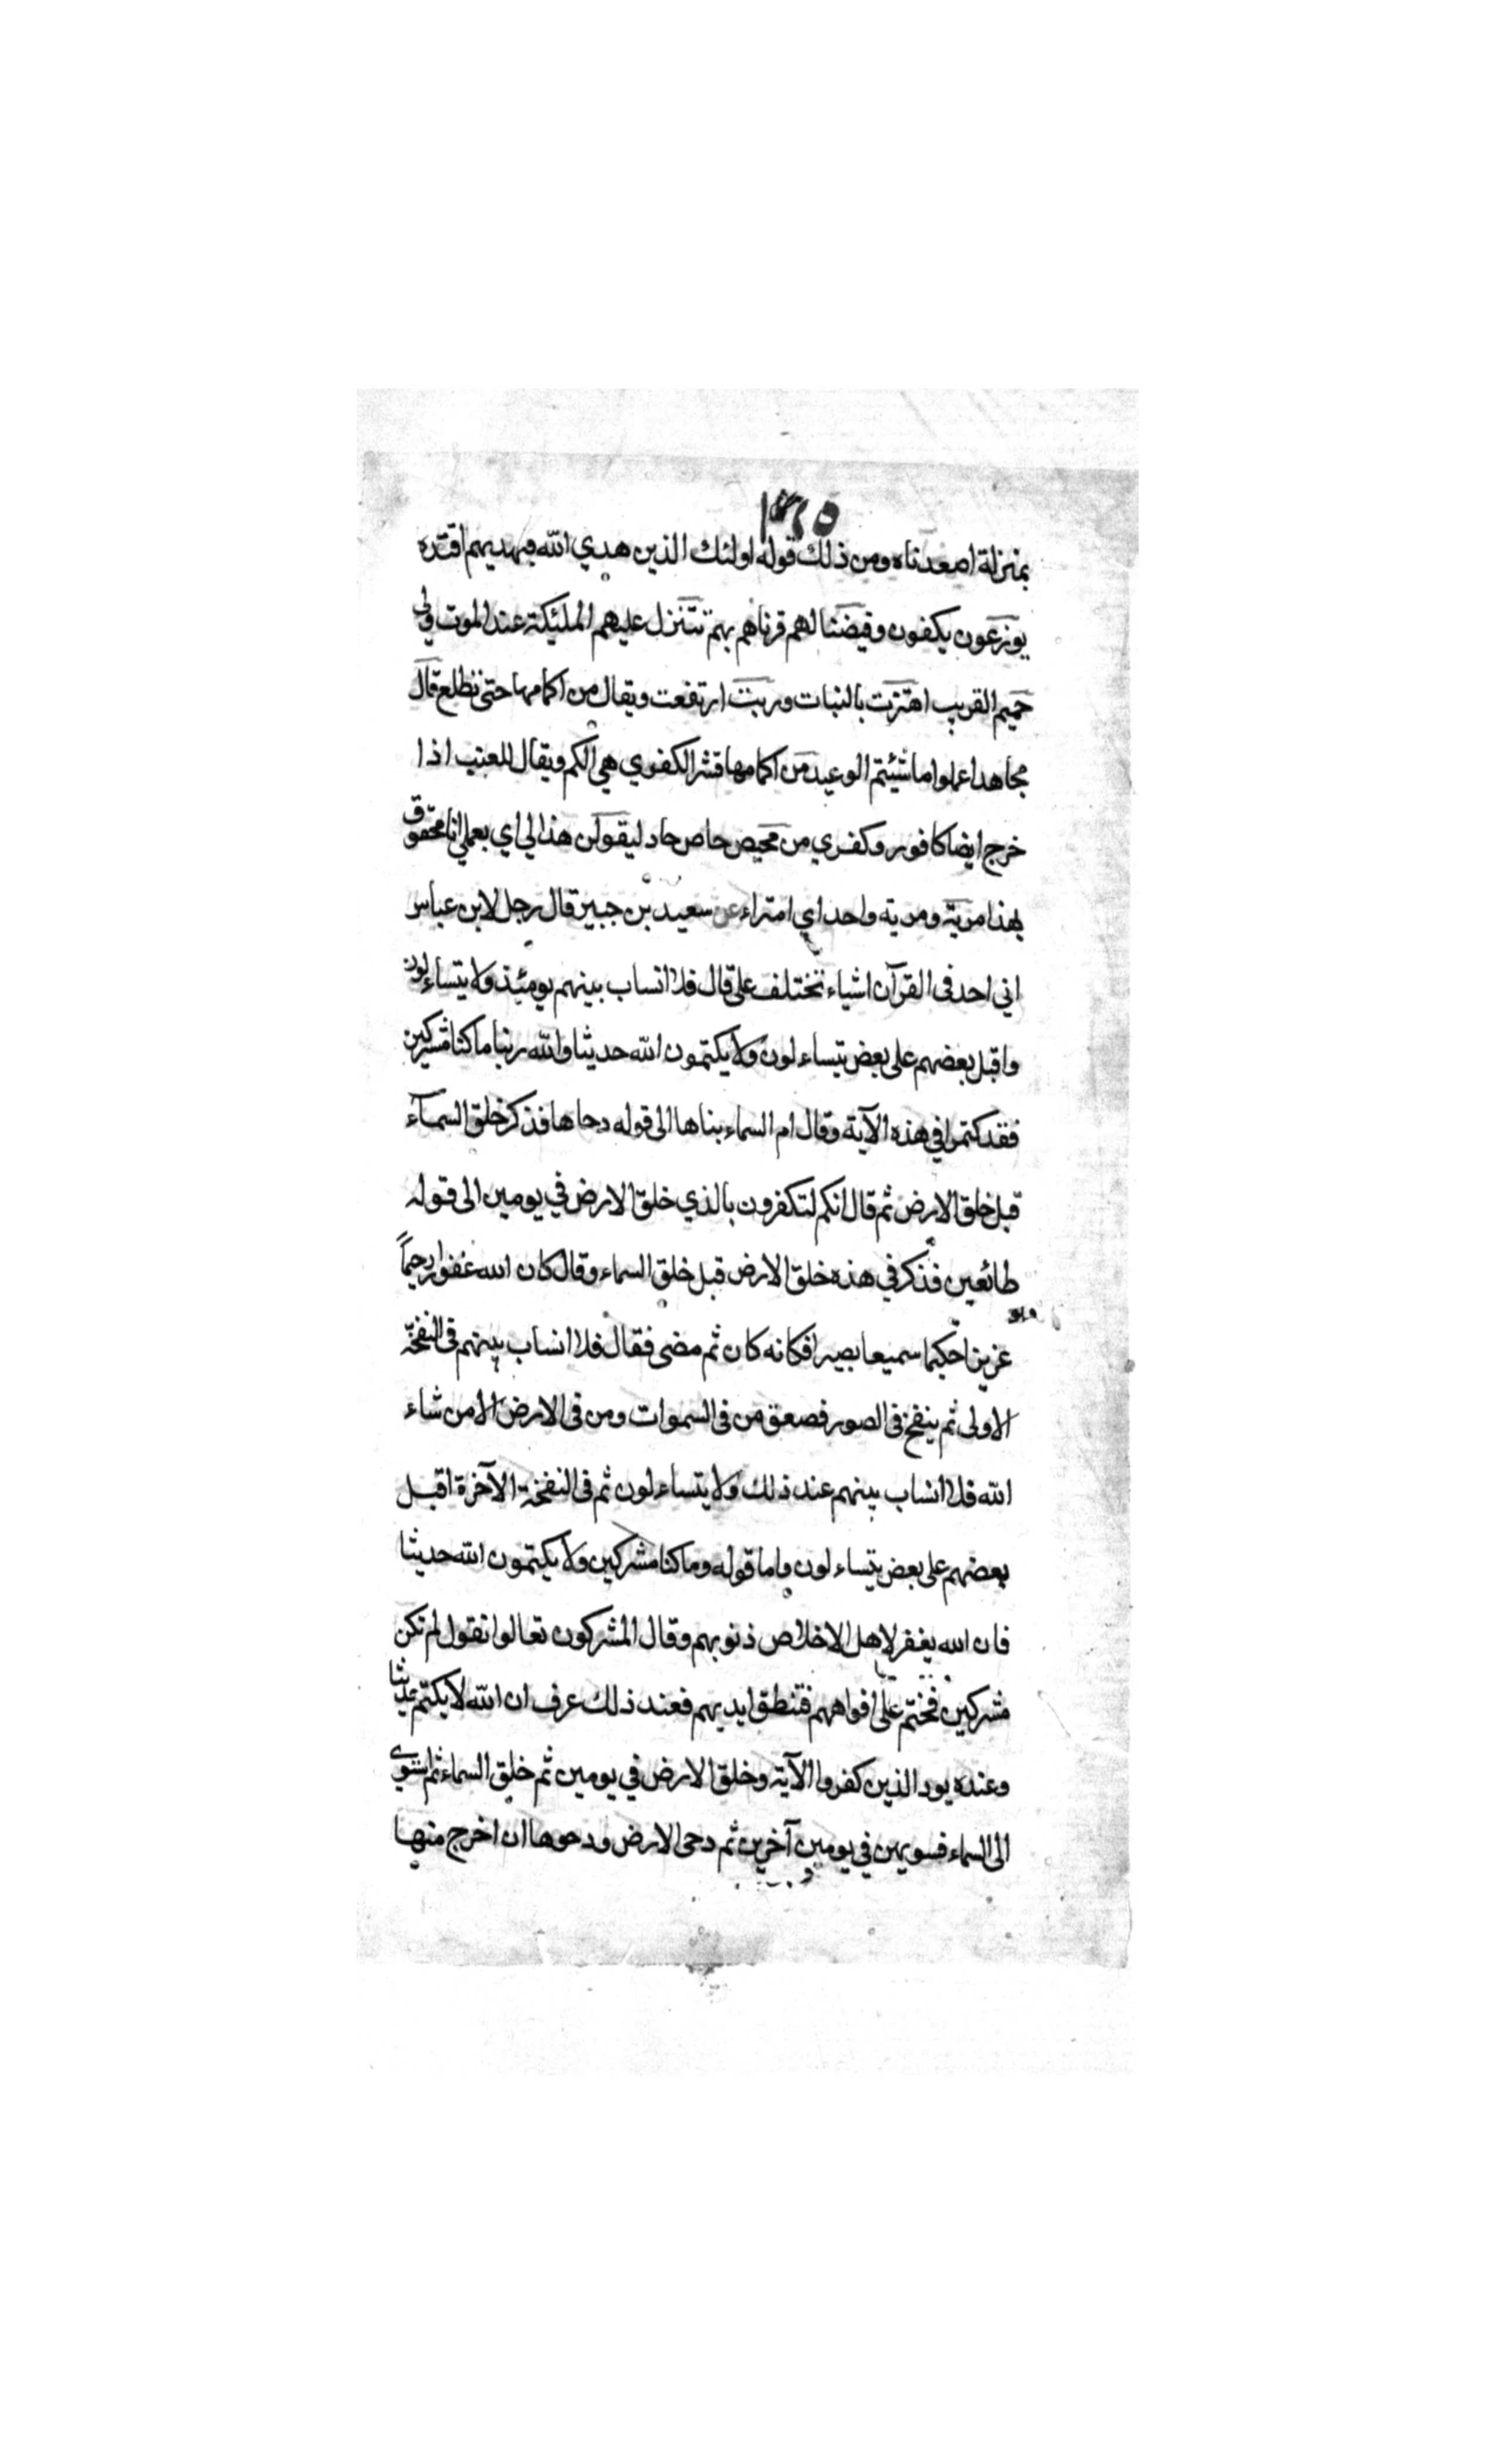 بمنزلة اصعدناه ومن ذلك قوله اولئك الذين هدي الله فبهديهم اقتده
يوزعون يكفون وقيضنا لهم قرناهم بهم تتنزل عليهم الملئكة عند الموت ولي
حميم القريب اهتزت بالنبات وربت ارتفعت ويقال من اكمامها حتى تطلع قال
مجاهد اعملوا ما شئيتم الوعيد من اكمامها قشر الكفري هي الكم ويقال للعنب اذا
خرج ايضا كافور وكفري من محيص حاص حاد ليقولن هذا لي اي بعملي انا محقوق
بهذا مرية ومرية واحد اي امتراء عن سعيد بن جبير قال رجل لابن عباس
اني احد فى القرآن اشياء تختلف على قال فلا انساب بينهم يومئذ ولا يتساءلون
واقبل بعضهم على بعض يتساءلون ولا يكتمون الله حديثا والله ربنا ما كنا مشركين
فقد كتموا في هذه الآية وقال ام السماء بناها الى قوله دحاها فذكر خلق السمآء
قبل خلق الارض ثم قال انكم لتكفرون بالذي خلق الارض في يومين الى قوله
طائعين فذكر في هذه خلق الارض قبل خلق السماء وقال كان الله غفورا رحيماً
عزيزا حكيما سميعا بصيرا فكانه كان ثم مضى فقال فلا انساب بينهم فى النفخة
الاولى ثم ينفخ فى الصور فصعق من فى السموات ومن فى الارض الا من شاء
الله فلا انساب بينهم عند ذلك ولا يتساءلون ثم فى النفخة الآخرة اقبل
بعضهم على بعض يتساءلون واما قوله وما كنا مشركين ولا يكتمون الله حديثا
فان الله يغفر لاهل الاخلاص ذنوبهم وقال المشركون تعالوا نقول لم نكن
مشركين فختم على افواههم فتنطق ايديهم فعند ذلك عرف ان الله لا يكتم حديثا
وعنده يود الذين كفروا الآية وخلق الارض في يومين ثم خلق السماء ثم استوي
الى السماء فسويهن في يومين آخرين ثم دحى الارض ودحوها ان اخرج منها